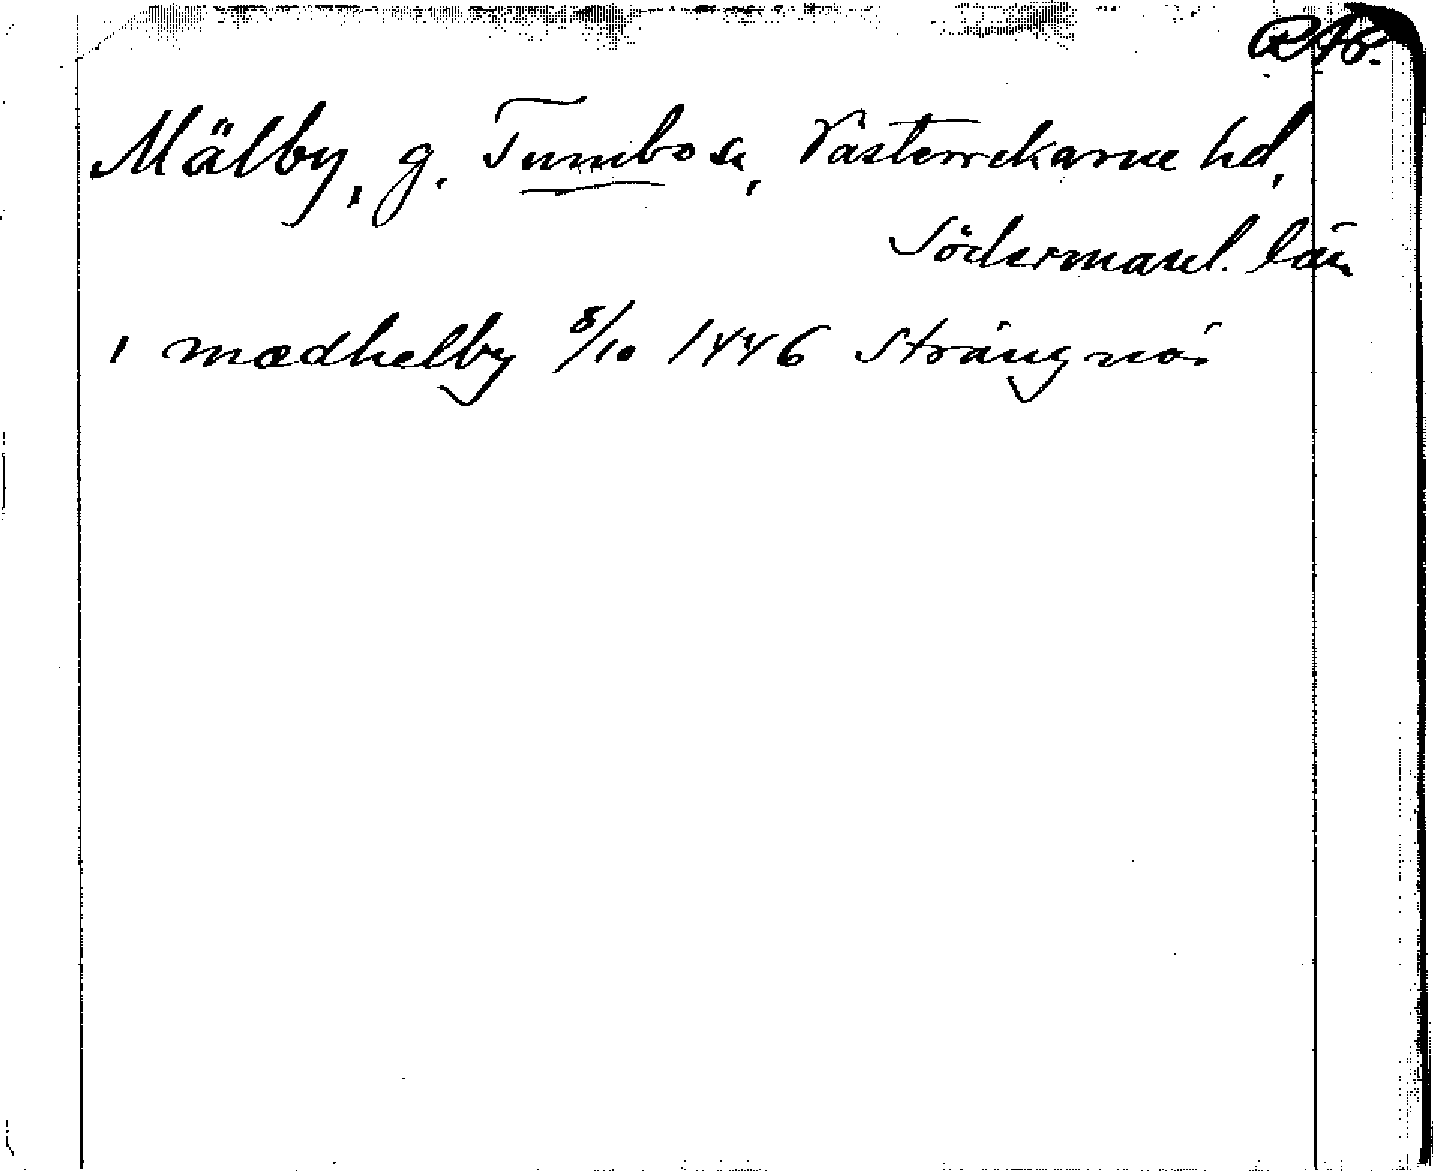 RAp.
Mälby, g. Tumbo sn, Västerrekarne hd,
Södermanl. län
i mædhelby 8/10 1446 Strängnäs